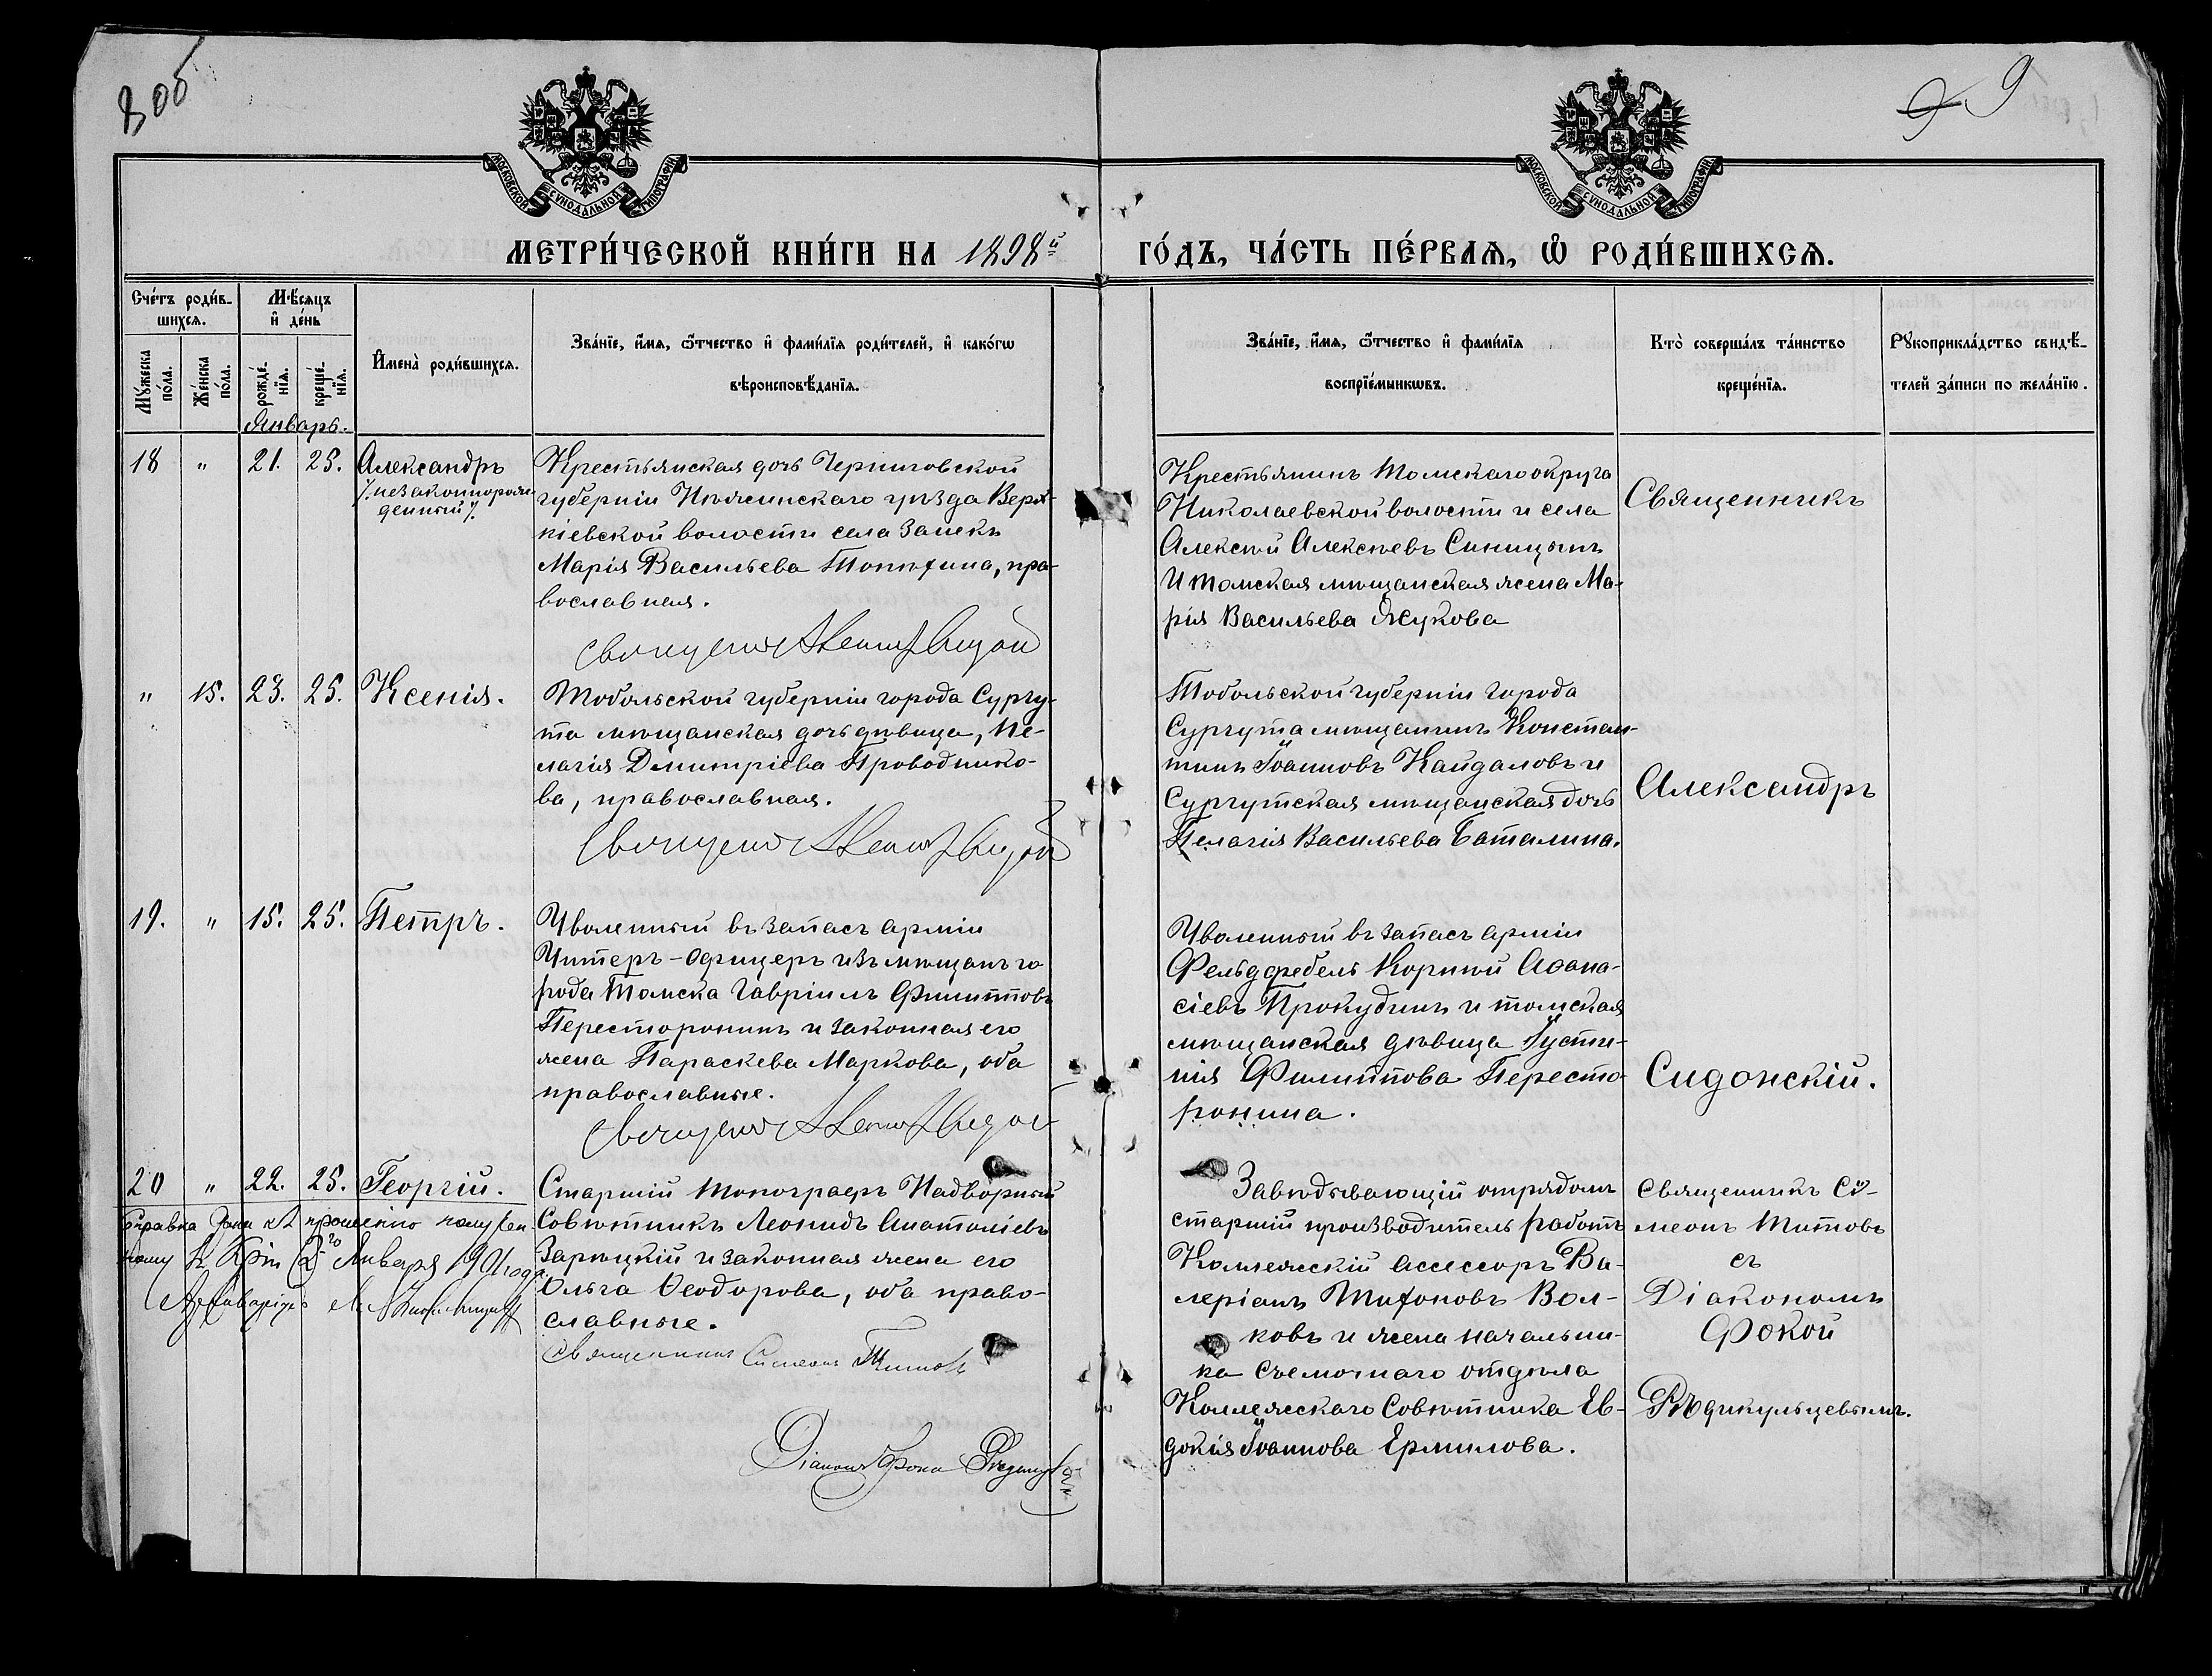 8 об
9 9
МОСКОВСКОЙ СѴНОДАЛЬНОЙ ТИПОГРАФІИ
МОСКОВСКОЙ СѴНОДАЛЬНОЙ ТИПОГРАФІИ
МЕТРИ́ЧЕСКОЙ КНИ́ГИ НА 1898й ГО́ДЪ, ЧА́СТЬ ПЕ́РВАѦ, Ѡ РОДИ́ВШИХСѦ.
Сче́тъ роди́в-
шихсѧ.
Мꙋ́жеска
по́ла.
Же́нска
по́ла.
Мѣ́сѧцъ
и҆ де́нь
рожде́-
нїѧ.
креще́-
нїѧ.
Январь.
И҆мена̀ роди́вшихсѧ.
Зва́нїе, и҆́мѧ, ѻ҆́тчество и҆ фами́лїѧ роди́телей, и҆ како́гѡ
вѣроисповѣ́данїѧ.
Зва́нїе, и҆́мѧ, ѻ҆́тчество и҆ фами́лїѧ
воспрїе́мникѡвъ.
Кто̀ соверша́лъ та́инство
креще́нїѧ.
Рꙋкоприкла́дство свидѣ́-
телей за́писи по жела́нїю.
18 " 21. 25. Александръ
/.незаконнорож-
денный/.
Крестьянская дочь Черниговской
губерніи Нѣжинскаго уѣзда Верт-
кіевской волости села Запекъ
Марія Васильева Топтгина, пра-
вославная.
Крестьянинъ Томскаго округа
Николаевской волости и села
Алексѣй Алексѣевъ Синицынъ
И томская мѣщанская жена Ма-
рія Васильева Жукова
Священникъ
" 15. 23. 25. Ксенія.
Тобольской губерніи города Сургу-
та мѣщанская дочь дѣвица, Пе-
лагія Дмитріева Проводнико-
ва, православная.
Тобольской губерніи города
Сургута мѣщанинъ Констан-
тинъ Іоанновъ Кайдаловъ и
Сургутская мѣщанская дочь
Пелагія Васильева Баталина.
Александръ
19. " 15. 25. Петръ.
Уволенный въ запасъ арміи
Унтеръ-офицеръ изъ мѣщанъ го
рода Томска Гавріилъ Филипповъ
Пересторонинъ и законная его
жена Параскева Маркова, оба
православные.
Уволенный въ запасъ арміи
Фельдфебель Корнилій Аѳана-
сіевъ Прокудинъ и томская
мѣщанская дѣвица Іусти-
нія Филиппова Пересто-
ронина.
Сидонскій.
20 " 22. 25. Георгій.
Справка дана
Января 190
Старшій топографъ Надворный
Совѣтникъ Леонидъ Анатоліевъ
Зарѣцкій и законная жена его
Ольга Ѳеодорова, оба право-
славные.
Священникъ Симеонъ Титовъ
Діаконъ Фока
Завѣдывающій отрядомъ
старшій производитель работъ
Коллежскій Ассессоръ Ва-
леріанъ Тихоновъ Вол-
ковъ и жена начальни-
ка съемочнаго отдѣла
Коллежскаго Совѣтника Ев-
докія Іоаннова Ермилова.
Священникъ Сѵ-
меонъ Титовъ
съ
Діакономъ
Фокой
Рѣдикульцевымъ.